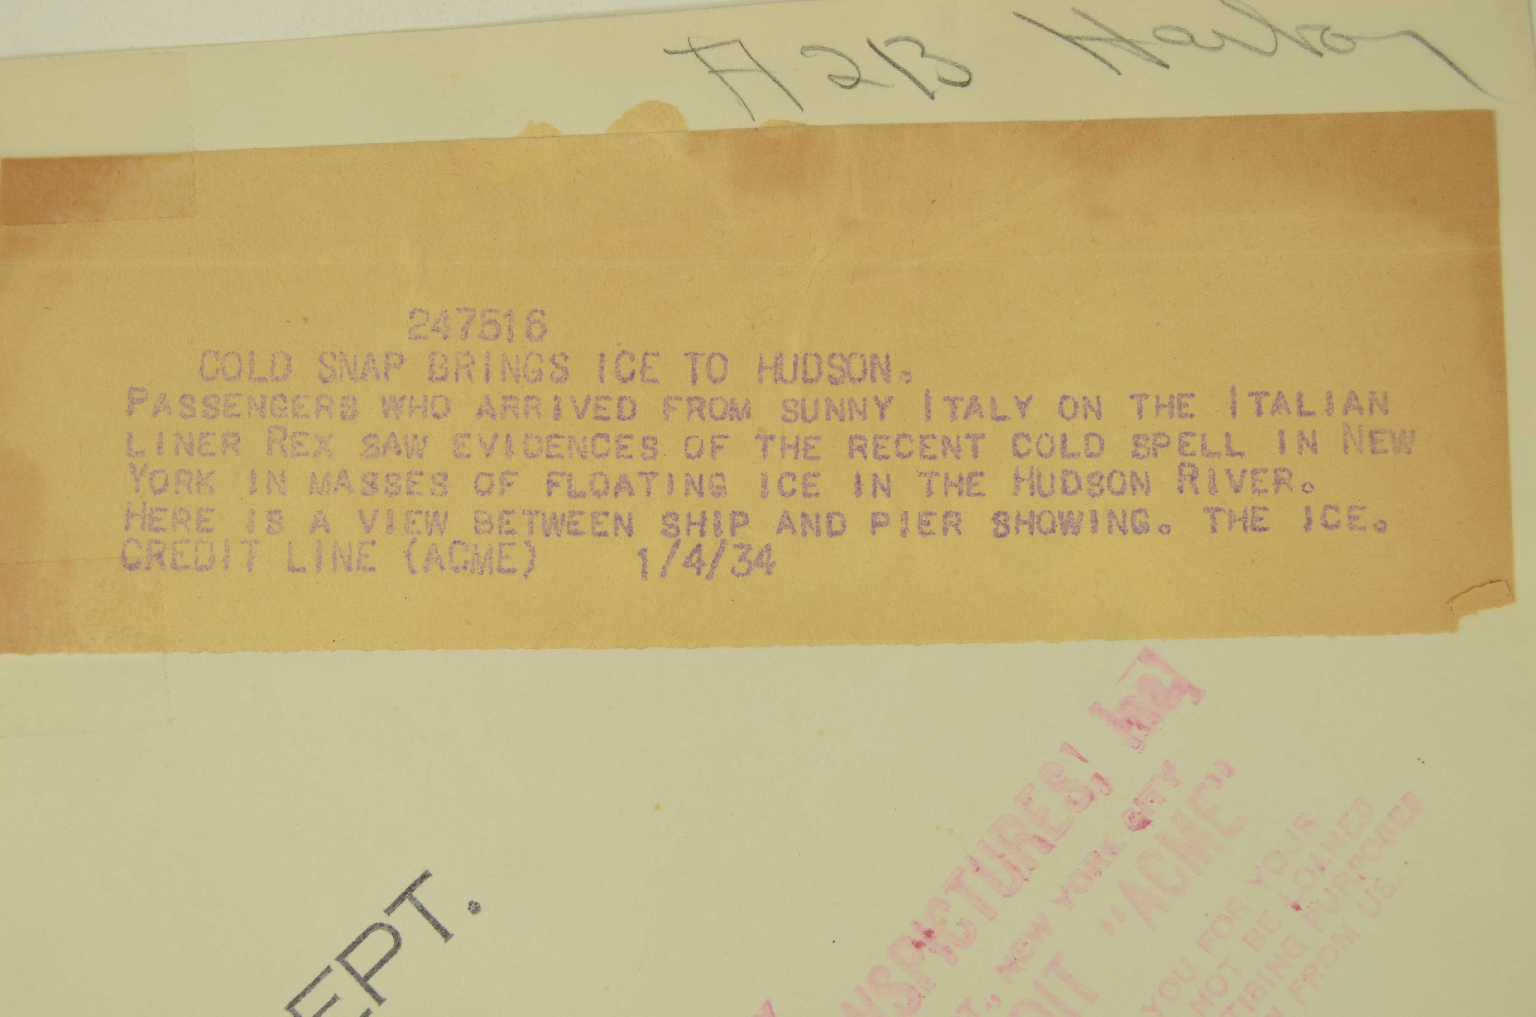 A 213 Harbor
247516
COLD SNAP BRINGS ICE TO HUDSON.
PASSENGERS WHO ARRIVED FROM SUNNY ITALY ON THE ITALIAN
LINER REX SAW EVIDENCES OF THE RECENT COLD SPELL IN NEW
YORK IN MASSES OF FLOATING ICE IN THE HUDSON RIVER.
HERE IS A VIEW BETWEEN SHIP AND PIER SHOWING. THE ICE.
CREDIT LINE (ACME) 1/4/34
EPT.
WSPICTURES, Inc.
NEW YORK CITY
DIT "ACME"
YOU FOR YOUR
NOT BE LOANED
TISING PURPOSES
FROM US.